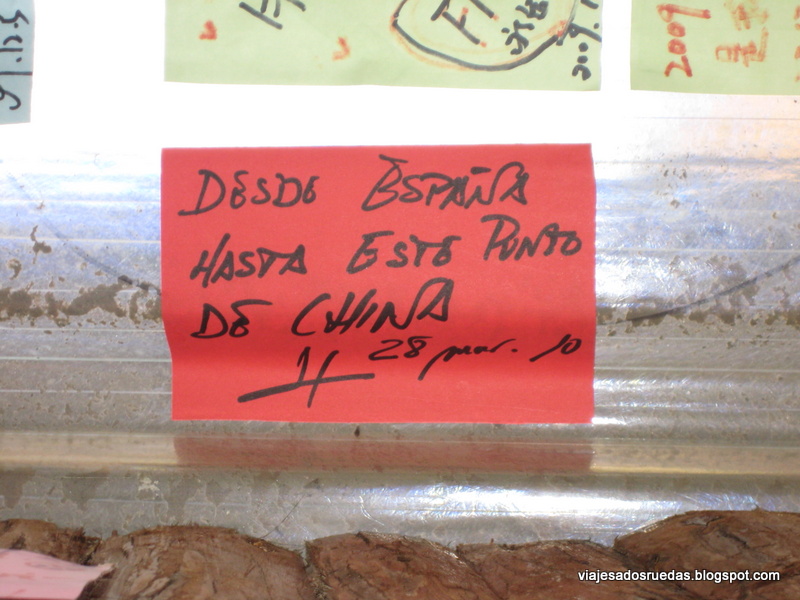 2009.1
2009
DESDE ESPAÑA
HASTA ESTE PUNTO
DE CHINA
28 mar. 10
viajesadosruedas.blogspot.com